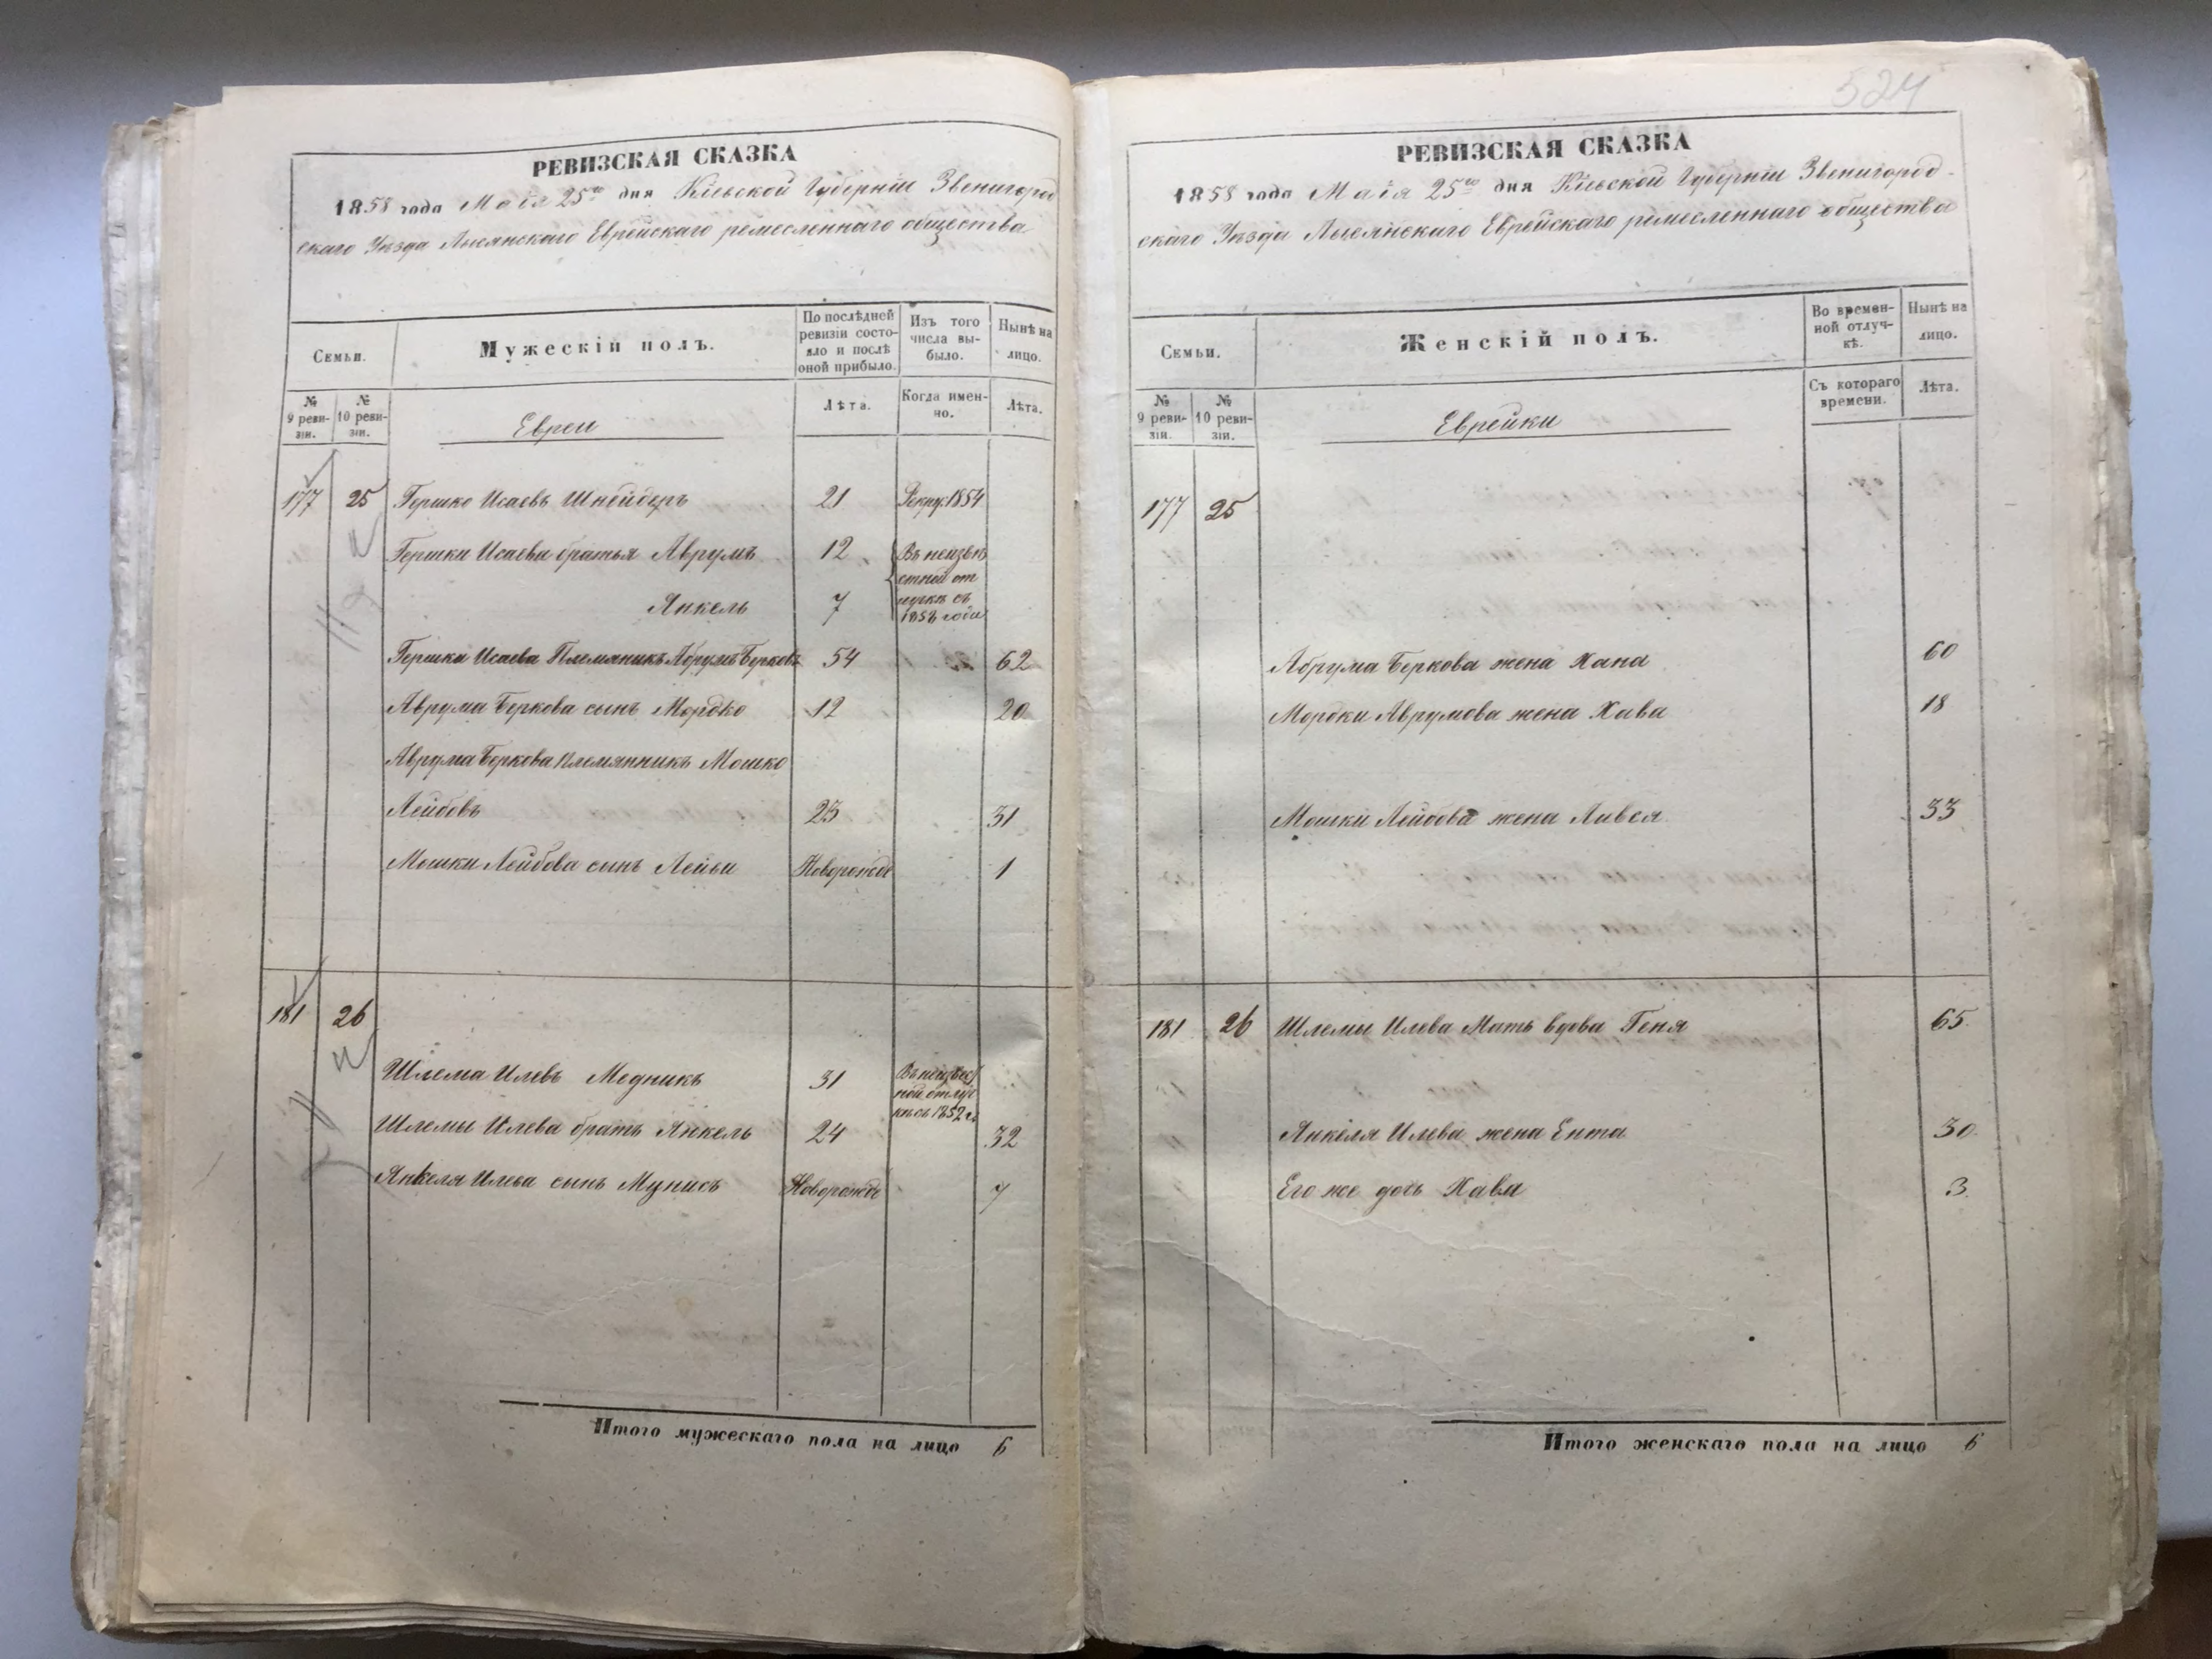 РЕВИЗСКАЯ СКАЗКА
1858 года Маія 25го дня Кіевской Губерніи Звенигород
скаго Уѣзда Лысянскаго Еврейскаго ремесленнаго общества
Семьи.
Мужескій полъ.
По послѣдней ревизіи состо-
яло и послѣ оной прибыло.
Изъ того числа вы-
было.
Нынѣ на лицо.
№ 9 реви-
зіи.
№ 10 реви-
зіи.
Евреи
Лѣта.
Когда имен-
но.
Лѣта.
177 25 Гершко Исаевъ Шнейдеръ 21 Рекру. 1854
Гершки Исаева братья Аврумъ 12 Въ неизвѣ
стной от
Янкель 7 лучкѣ съ
1858 года
Гершки Исаева Племяникъ Абрумъ Берковъ 54 62
Аврума Беркова сынъ Мордко 12 20
Аврума Беркова племянникъ Мошко
Лейбовъ 23 31
Мошки Лейбова сынъ Лейви Новорожде 1
181 26
Шлема Илевъ Медникъ 31 Въ неизвес
ной отлуч
кѣ съ 1852 г.
Шлемы Илева братъ Янкель 24 32
Янкеля Илева сынъ Мунисъ Новорожде 7
Итого мужескаго пола на лицо 6
524
РЕВИЗСКАЯ СКАЗКА
1858 года Маія 25го дня Кіевской Губерніи Звенигород-
скаго Уѣзда Лысянскаго Еврейскаго ремесленнаго общества
Семьи.
Женскій полъ.
Во времен-
ной отлуч-
кѣ.
Нынѣ на лицо.
№ 9 реви-
зіи.
№ 10 реви-
зіи.
Еврейки
Съ котораго времени.
Лѣта.
177 25
Абрума Беркова жена Хана 60
Мордки Аврумова жена Хава 18
Мошки Лейбова жена Лився 33
181 26 Шлемы Илева Мать вдова Геня 65
Янкеля Илева жена Ента 30
Его же дочь Хава 3
Итого женскаго пола на лицо 6